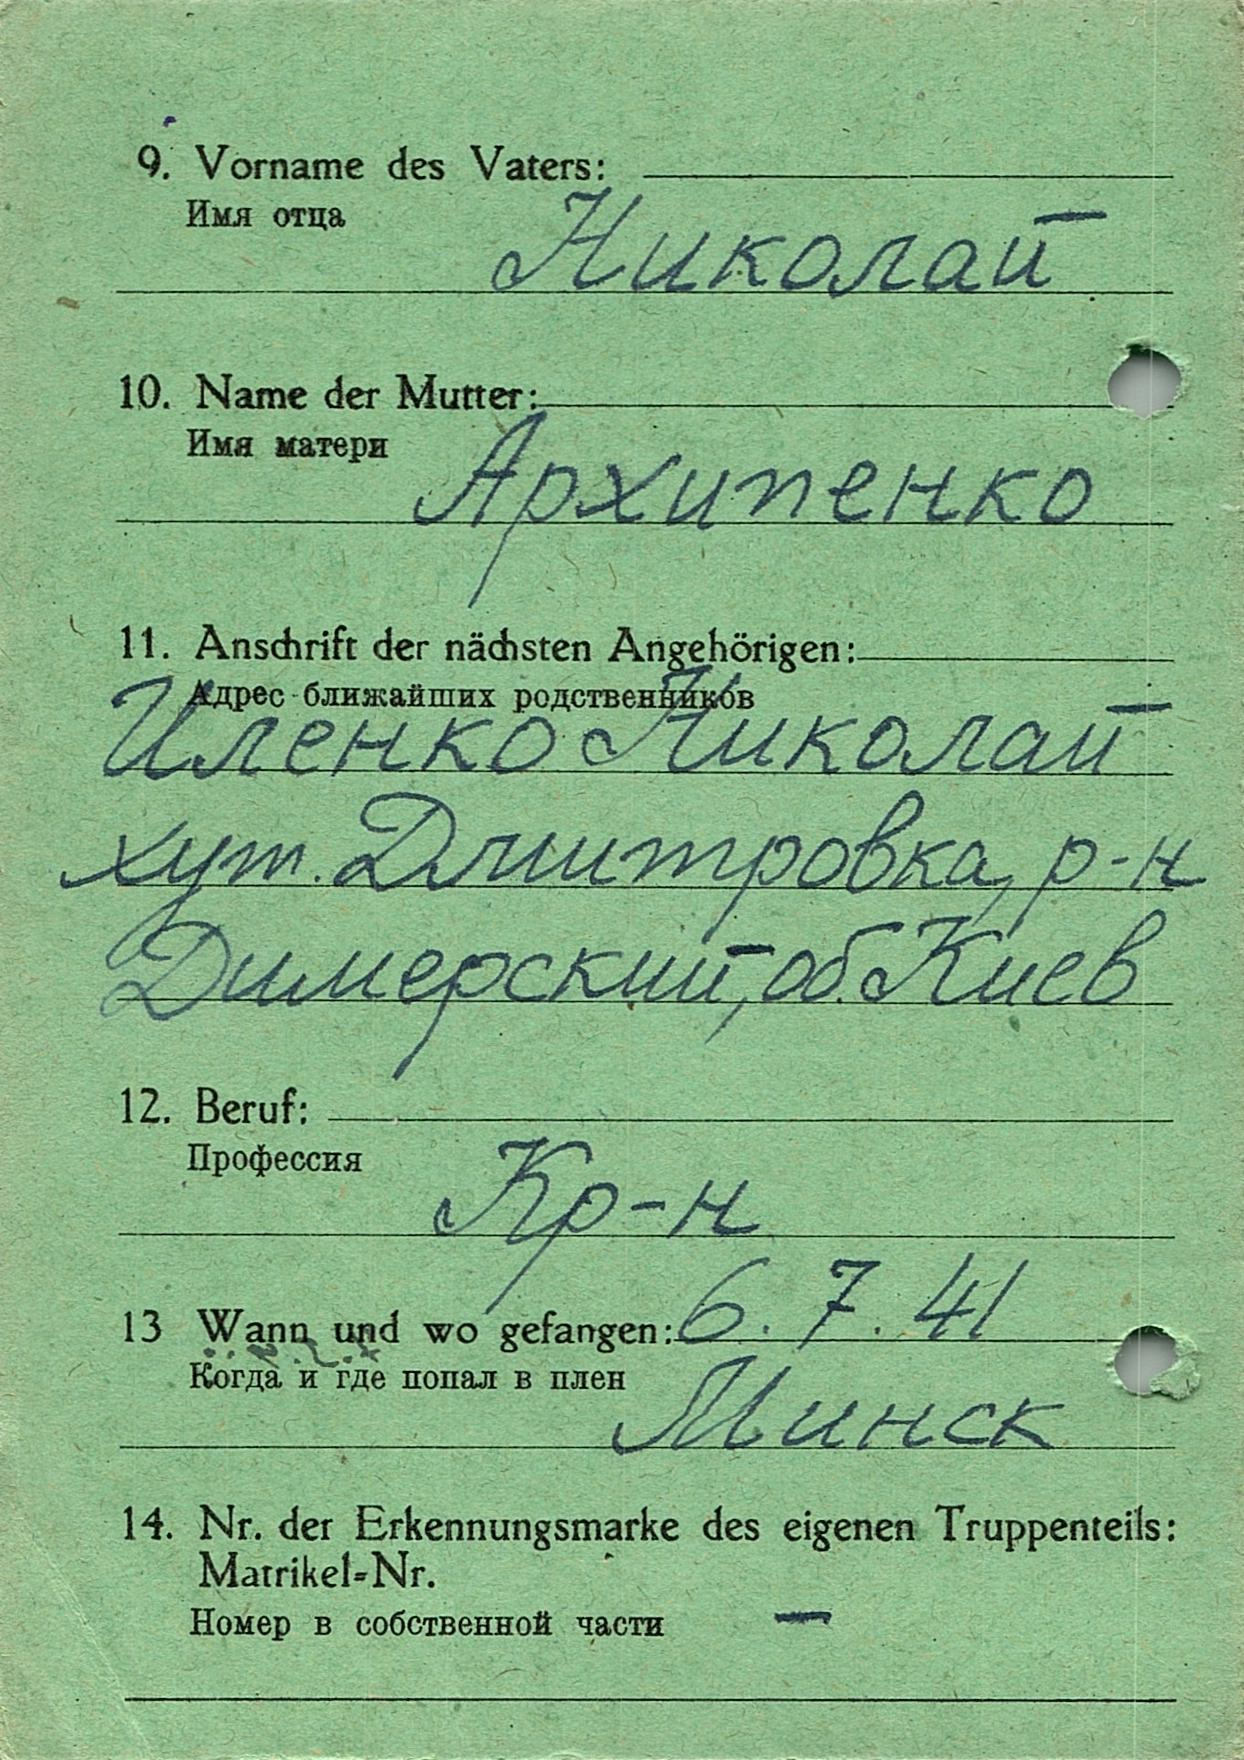 9. Vorname des Vaters:
Имя отца
Николай
10. Name der Mutter:
Имя матери
Архипенко
11. Anschrift der nächsten Angehörigen:
Адрес ближайших родственников
Иленко Николай
хут. Дмитровка, р-н
Димерский, об. Киев
12. Beruf:
Профессия
Кр-н
13 Wann und wo gefangen: 6. 7. 41
Когда и где попал в плен
Минск
14. Nr. der Erkennungsmarke des eigenen Truppenteils:
Matrikel=Nr.
Номер в собственной части —